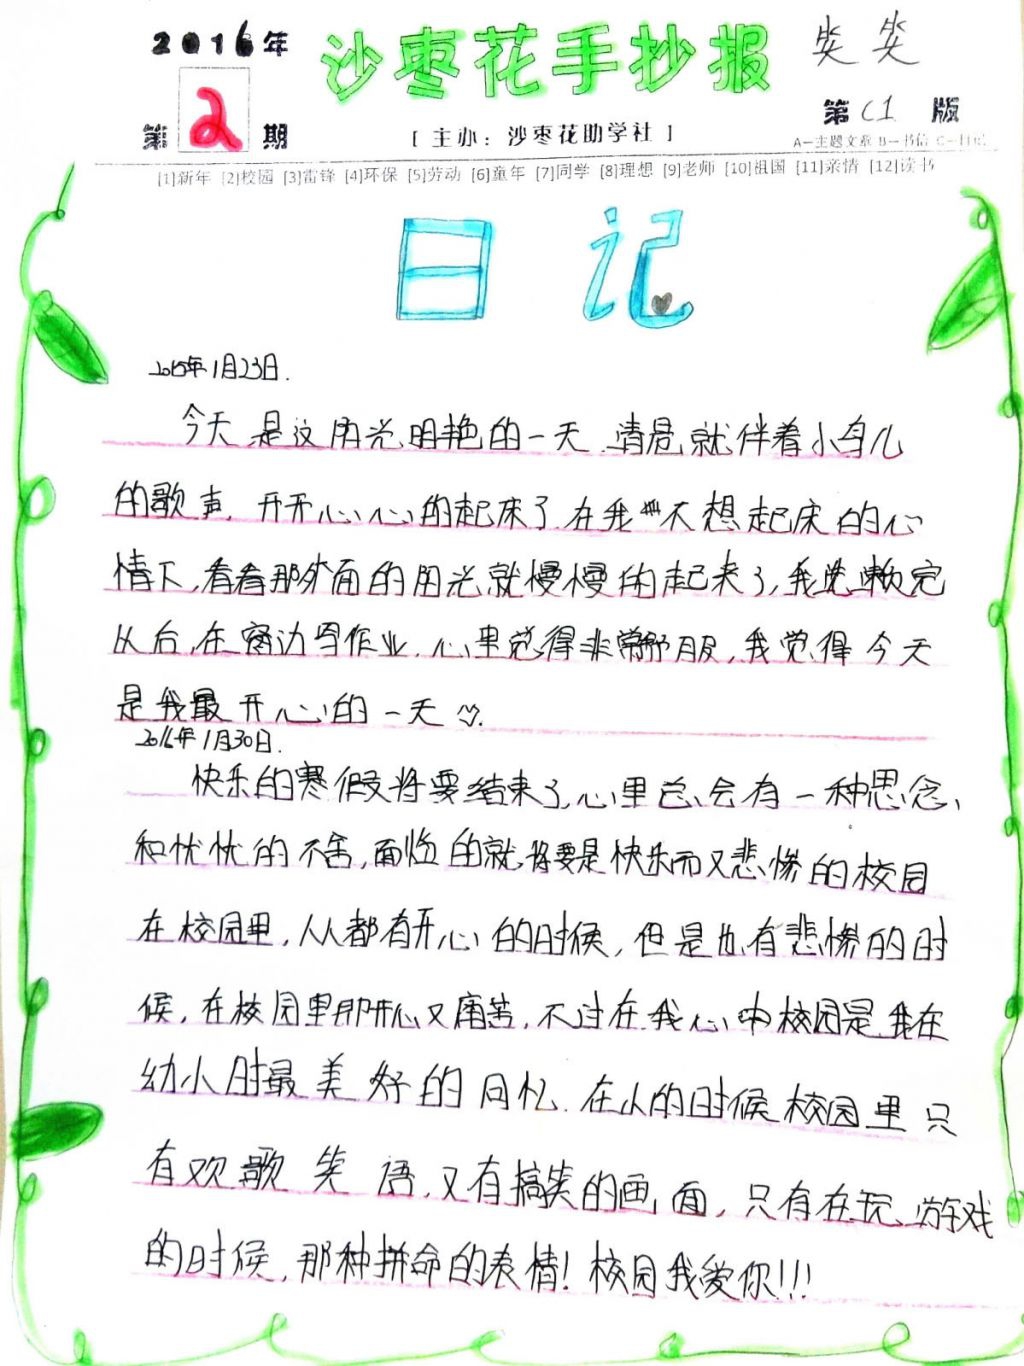 2016年
第2期
沙枣花手抄报
[ 主办：沙枣花助学社 ]
笑笑
第C1版
A—主题文章 B—书信 C—日记
[1]新年 [2]校园 [3]雷锋 [4]环保 [5]劳动 [6]童年 [7]同学 [8]理想 [9]老师 [10]祖国 [11]亲情 [12]读书
日记
2015年1月23日.
今天是这阳光明艳的一天.清晨就伴着小鸟儿
的歌声,开开心心的起床了.在我不想起床的心
情下,看看那外面的阳光就慢慢的起来了,我洗漱完
从后,在窗边写作业,心里觉得非常舒服,我觉得今天
是我最开心的一天
2016年1月30日.
快乐的寒假将要结束了,心里总会有一种思念、
和忧忧的不舍,面临的就将要是快乐而又悲惨的校园
在校园里,人人都有开心的时候,但是也有悲惨的时
候,在校园里即开心又痛苦,不过在我心中校园是我在
幼小时最美好的回忆.在小的时候校园里只
有欢歌笑语,又有搞笑的画面,只有在玩游戏
的时候,那种拼命的表情!校园我爱你!!!